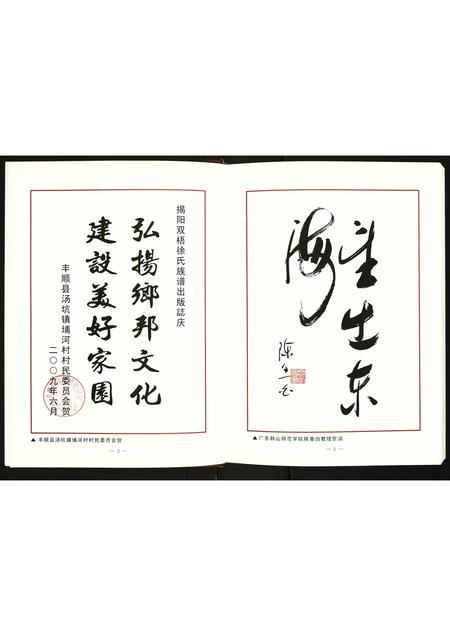 揭阳双梧徐氏族谱出版誌庆
弘揚鄉邦文化
建設美好家園
丰顺县汤坑镇埔河村村民委员会贺
二〇〇九年六月
▲丰顺县汤坑镇埔河村村民委员会贺
— 2 —
出东
海
陈
▲广东韩山师范学院陈香白教授贺词
— 3 —